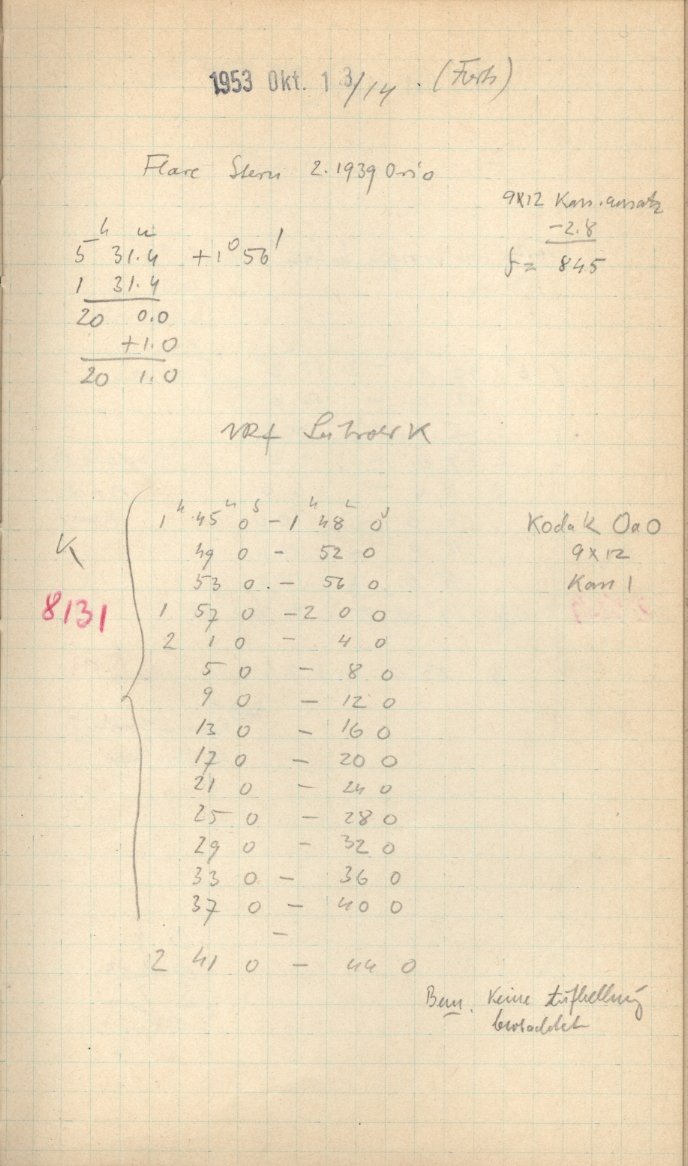 1953 Okt. 13/14. (Forts)
Flare Stern 2.1939 Orio
9x12 Kass.ansatz
-2.8
f = 845
5 h 31.4 m +1° 56'
1 31.4
20 0.0
+1.0
20 1.0
K
K
8131
Kodak OaO
9x12
Kass 1
1h 45m 0s - 1h 48m 0s
49 0 - 52 0
53 0 - 56 0
1 57 0 - 2 0 0
2 1 0 - 4 0
5 0 - 8 0
9 0 - 12 0
13 0 - 16 0
17 0 - 20 0
21 0 - 24 0
25 0 - 28 0
29 0 - 32 0
33 0 - 36 0
37 0 - 40 0
-
2 41 0 - 44 0
Bem. Keine Aufhellung
beobachtet